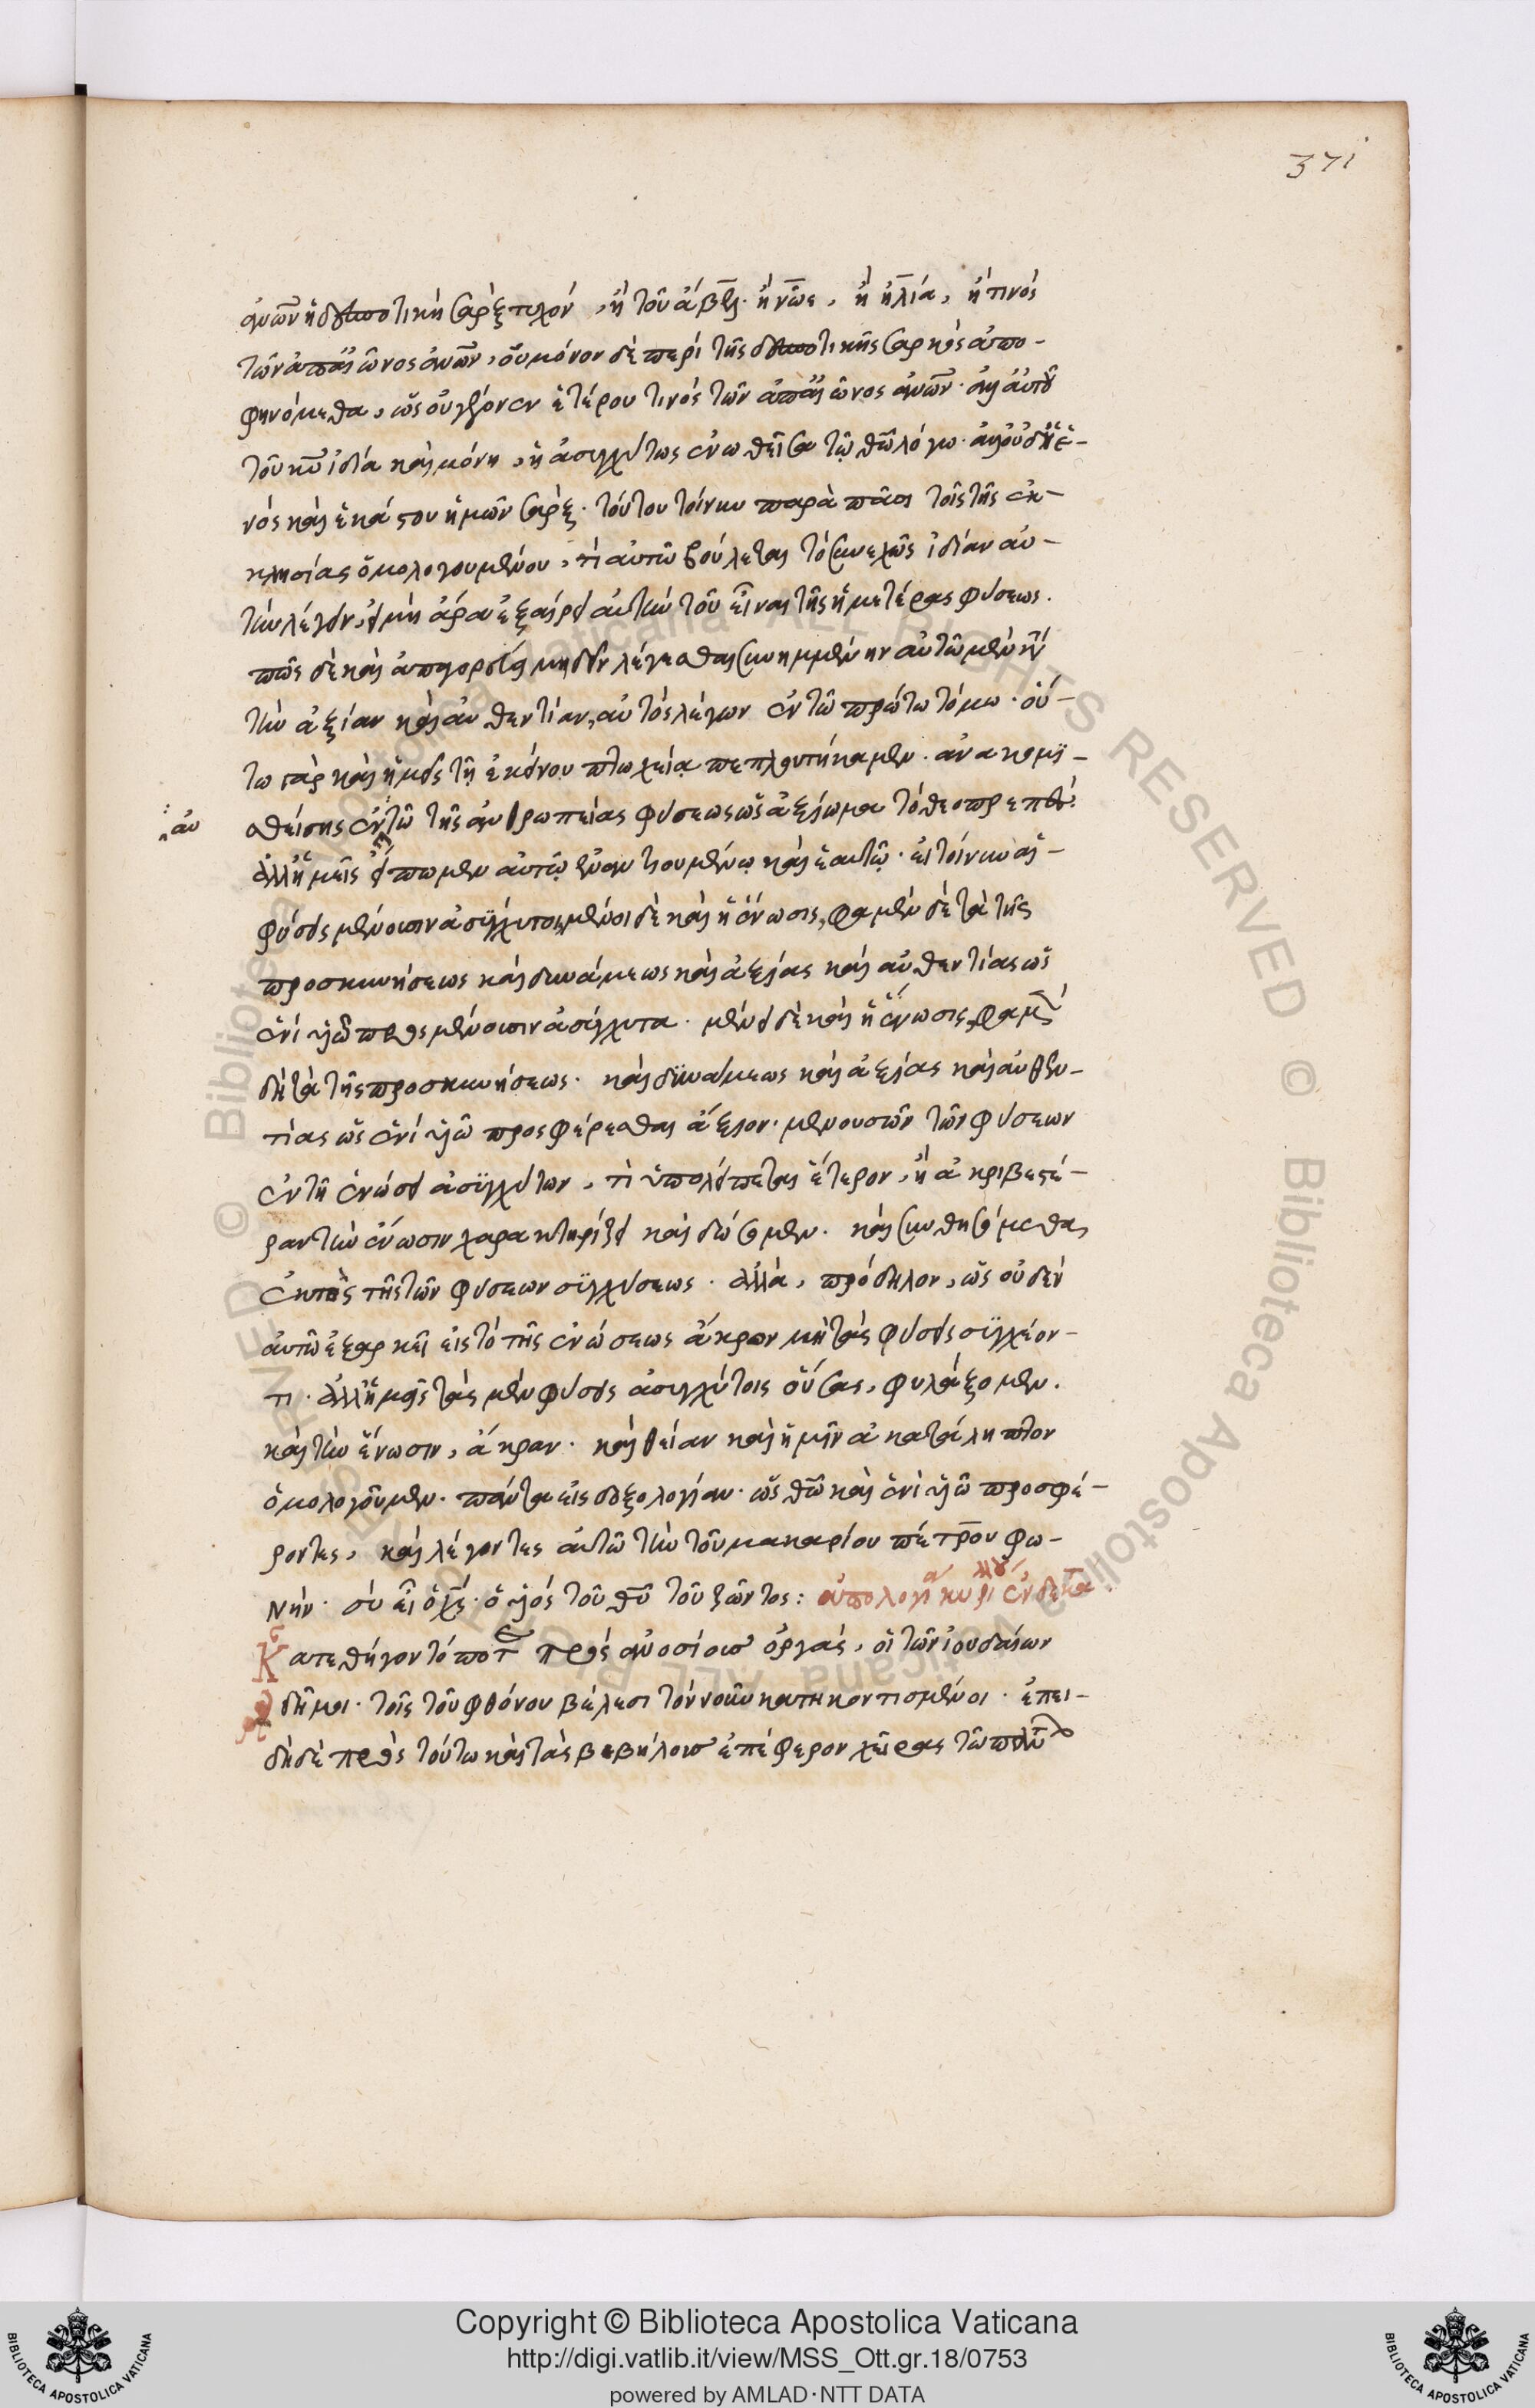 371
ἀνῶν ἡ δεσποτικὴ σὰρξ τυχὸν, ἢ τοῦ ἄβελ· ἢ νῶε, ἢ ἠλία, ἤ τινος
τῶν ἀπαἰῶνος ἀνῶν, οὐ μόνον δὲ περὶ τῆς δεσποτικῆς σαρκὸς ἀπο-
φηνόμεθα, ὡς οὐ γέγονεν ἑτέρου τινὸς τῶν ἀπαἰῶνος ἀνῶν· ἀλλ' αὐτοῦ
τοῦ κυ ἰδία καὶ μόνη, ἡ ἀσυγχύτως ἑνωθεῖσα τῷ θω λόγω· ἀλλ' οὐδὲ ἑ-
νὸς καὶ ἑκάστου ἡμῶν σὰρξ· τούτου τοίνυν παρὰ πᾶσι τοῖς τῆς ἐκ-
κλησίας ὁμολογουμένου, τί αὐτῶ βούλεται τὸ συνεχῶς ἰδίαν αὐ-
τὴν λέγειν, εἰ μὴ ἄρα ἐξαίρει αὐτὴν τοῦ εἶναι τῆς ἡμετέρας φύσεως.
πῶς δὲ καὶ ἀπαγορεύει μηδὲν λέγεσθαι συνημμένην αὐτῶ μὲν
τὴν ἀξίαν καὶ αὐθεντίαν, αὐτὸς λέγων ἐν τῶ πρώτω τόμω· οὕ-
τω γὰρ καὶ ἡμεῖς τῇ ἐκείνου πτωχείᾳ πεπλουτήκαμεν· ἀνακομι-
σθείσης ἐν τῶ τῆς ἀνθρωπείας φύσεως ὡς ἀξίωμα τὸ θεοπρεπές·
αὐ
ἀλλ' ἡμεῖς εἴπωμεν αὐτῷ ἐναντιουμένῳ καὶ ἑαυτῷ· εἰ τοίνυν αἱ
φύσεις μένουσιν ἀσύγχυτοι, μένει δὲ καὶ ἡ ἕνωσις, φαμὲν δὲ τὰ τῆς
προσκυνήσεως καὶ δυνάμεως καὶ ἀξίας καὶ αὐθεντίας ὡς
ἑνὶ υἱῶ πρὸς μένουσιν ἀσύγχυτα· μένει δὲ καὶ ἡ ἕνωσις, φαμὲν
δὴ τὰ τῆς προσκυνήσεως· καὶ δυνάμεως καὶ ἀξίας καὶ αὐθεν-
τίας ὡς ἑνὶ υἱῶ προσφέρεσθαι ἄξιον· μενουσῶν τῶν φύσεων
ἐν τῆ ἑνώσει ἀσυγχύτων, τί ὑπολείπεται ἕτερον, ἢ ἀκριβεστέ-
ραν τὴν ἕνωσιν χαρακτηρίζει καὶ δώσομεν· καὶ συνθησόμεθα
ἐκτὸς τῆς τῶν φύσεων συγχύσεως· ἀλλὰ, πρόδηλον, ὡς οὐδὲν
αὐτῶ ἐξαρκεῖ εἰς τὸ τῆς ἑνώσεως ἄκρον μὴ τὰς φύσεις συγχέον-
τι· ἀλλ' ἡμεῖς τὰς μὲν φύσεις ἀσυγχύτοις οὔσας, φυλάξομεν.
καὶ τὴν ἕνωσιν, ἄκραν· καὶ θείαν καὶ ἡμῖν ἀκατάληπτον
ὁμολογοῦμεν· πάντα εἰς δοξολογίαν· ὡς θῶ καὶ ἑνὶ υἱῶ προσφέ-
ροντες, καὶ λέγοντες αὐτῶ τὴν τοῦ μακαρίου πέτρου φω-
νήν· σὺ εἶ ὁ χς· ὁ υἱὸς τοῦ θυ τοῦ ζῶντος: ἀπολογί κυρί ἑνδεκα
Κατεθήγοντό ποτε πρὸς ἀνοσίους ὀργὰς, οἱ τῶν ἰουδαίων
δῆμοι· τοῖς τοῦ φθόνου βέλεσι τὸν νοῦν κατηκοντισμένοι· ἐπει-
δὴ δὲ πρὸς τούτω καὶ τὰς βεβήλους ἐπέφερον χεῖρας τῶ
Copyright © Biblioteca Apostolica Vaticana
http://digi.vatlib.it/view/MSS_Ott.gr.18/0753
powered by AMLAD·NTT DATA